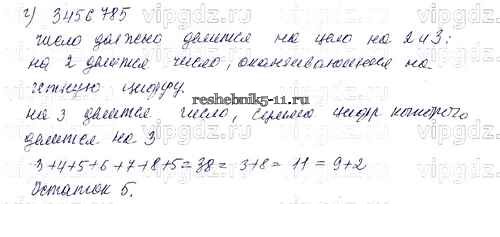 г) 3456785
число должно делится на цело на 2 и 3:
на 2 делится число, оканчивающиеся на
четную цифру.
reshebnik5-11.ru
на 3 делится число, сумма цифр которого
делится на 3
3+4+5+6+7+8+5=38= 3+8= 11 = 9+2
Остаток 5.
vipgdz.com